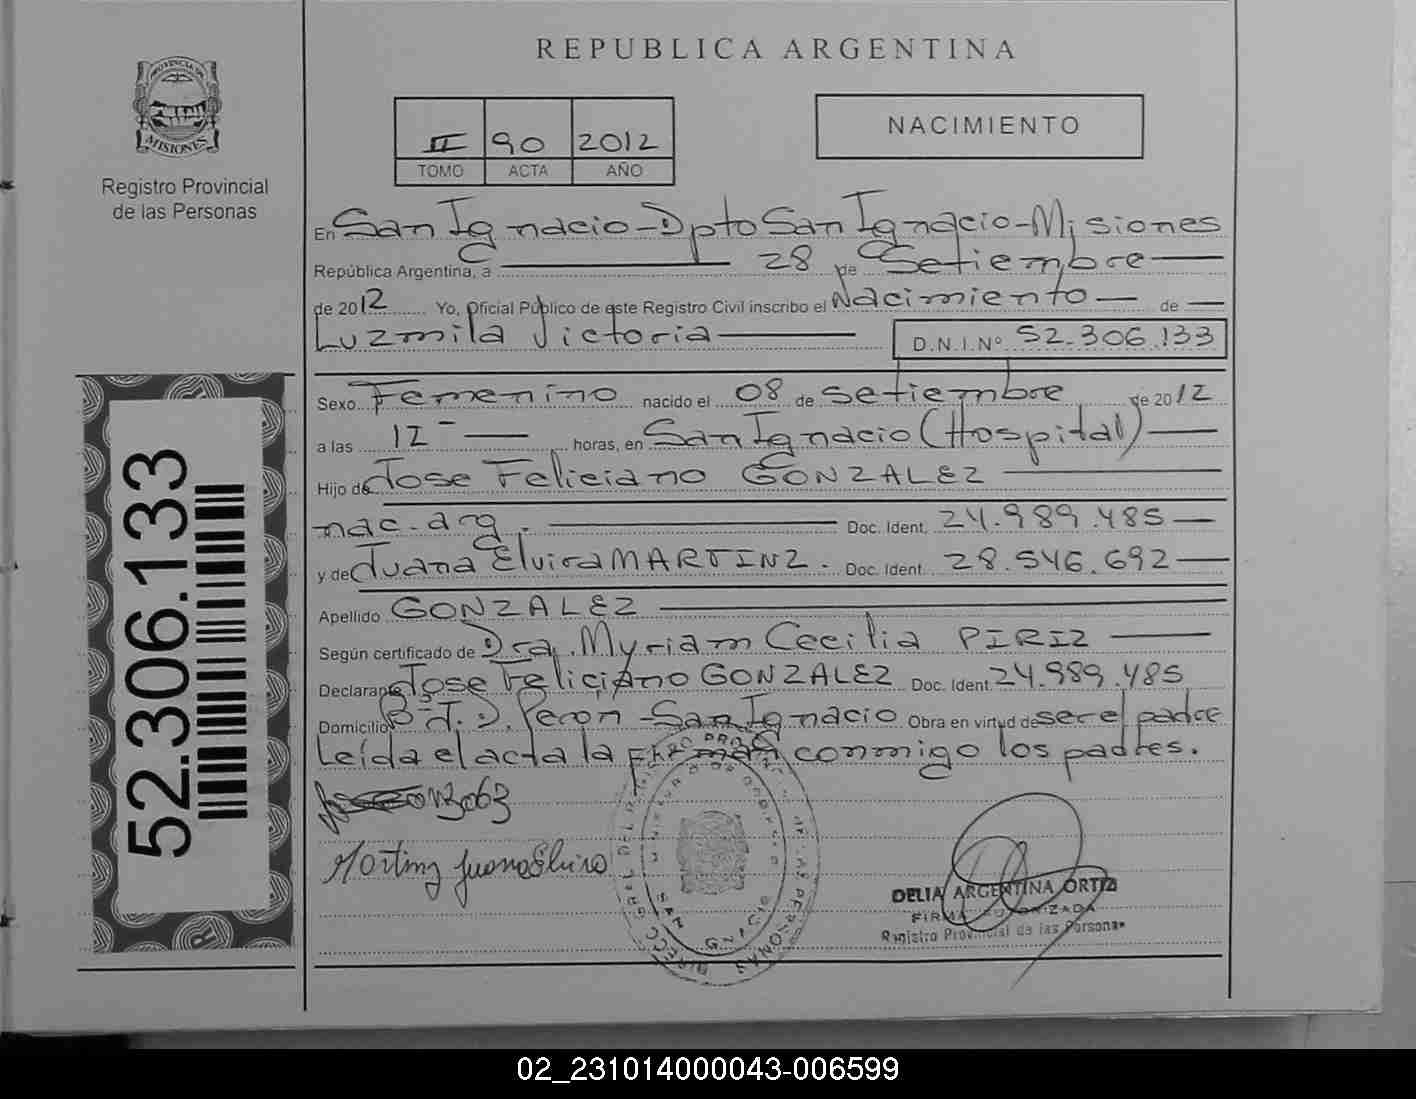 REPUBLICA ARGENTINA
PROVINCIA DE
MISIONES
Registro Provincial
de las Personas
II 90 2012
TOMO ACTA AÑO
NACIMIENTO
En San Ignacio - Dpto San Ignacio - Misiones
República Argentina, a 28 de Setiembre
de 2012 Yo, Oficial Público de este Registro Civil inscribo el Nacimiento de
Luzmila Victoria D.N.I.Nº 52.306.133
Sexo Femenino nacido el 08 de setiembre de 2012
a las 12 horas, en San Ignacio (Hospital)
Hijo de Jose Feliciano GONZALEZ
nac. arg. Doc. Ident. 24.989.485
y de Juana Elvira MARTINZ. Doc. Ident. 28.546.692
Apellido GONZALEZ
Según certificado de Dra. Myriam Cecilia PIRIZ
Declarante Jose Feliciano GONZALEZ Doc. Ident 24.989.485
Domicilio Bº J. D. Peron - San Ignacio Obra en virtud de ser el padre
Leída el acta la firman conmigo los padres.
Juana Elvira
DELIA ARGENTINA ORTIZ
FIRMA AUTORIZADA
Registro Provincial de las Personas
52.306.133
02_231014000043-006599